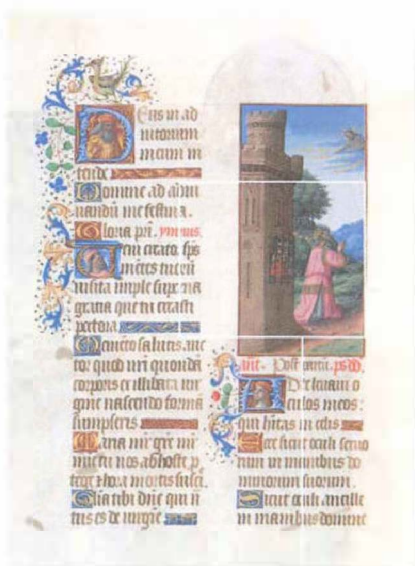 Deus in ad
iutorium
meum in
tende
Domine ad adiu
uandū me festina.
Gloria pri. ymnus.
Veni creator sps
mentes tuorū
visita imple supna
gratia que tu creasti
pectora.
Memento salutis auc
tor quod nri quondā
corporis ex illibata vir
gine nascendo formā
sumpseris
Maria mr gre mr
mie tu nos ab hoste p
tege et hora mortis suscipe
Gloria tibi dne qui n
tus es de virgine
ant. Post partū. ps. dd.
Ad te leuaui o
culos meos:
qui hitas in celis
Ecce sicut oculi seruo
rum in manibus do
minorum suorum.
Sicut oculi ancille
in manibus domine